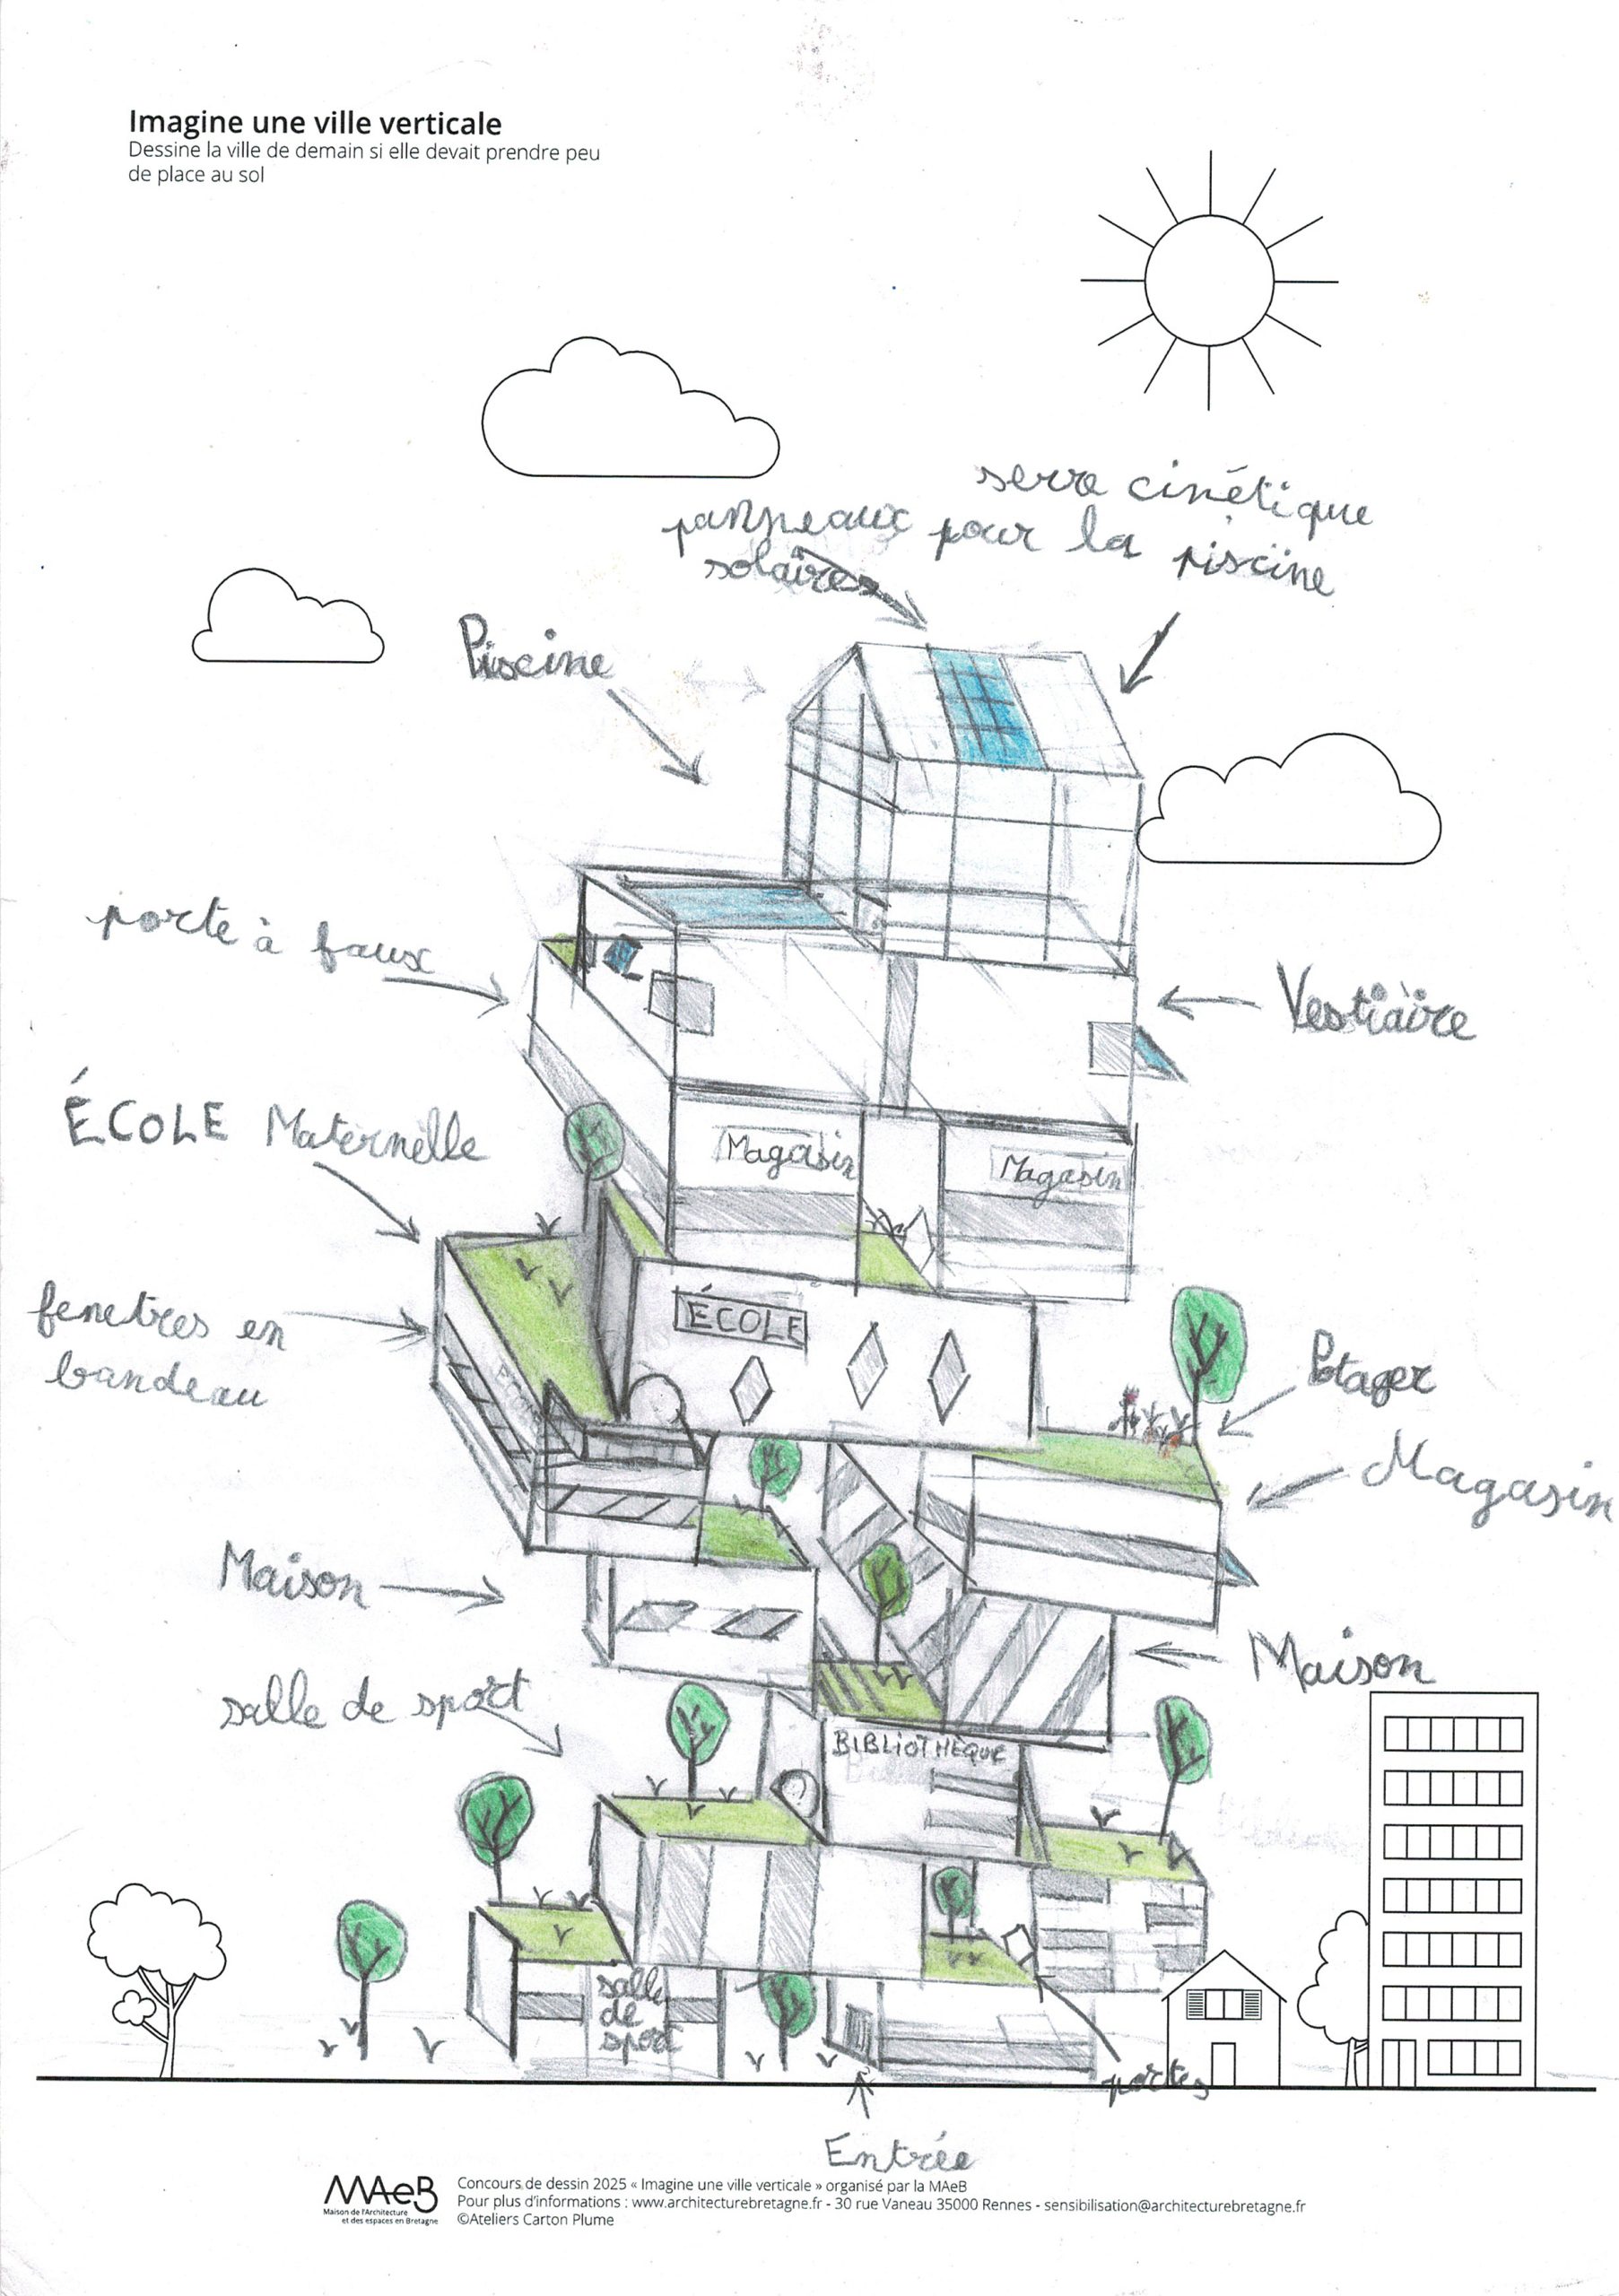 Imagine une ville verticale
Dessine la ville de demain si elle devait prendre peu
de place au sol
serre cinétique
pour la piscine
panneaux
solaires
Piscine
porte à faux
Vestiaire
ÉCOLE Maternelle
Magasin
Magasin
fenetres en
bandeau
ÉCOLE
ECOLE
Potager
Magasin
Maison
Maison
salle de sport
BIBLIOTHÈQUE
salle
de
sport
portes
Entrée
MAeB
Maison de l'Architecture
et des espaces en Bretagne
Concours de dessin 2025 « Imagine une ville verticale » organisé par la MAeB
Pour plus d'informations : www.architecturebretagne.fr - 30 rue Vaneau 35000 Rennes - sensibilisation@architecturebretagne.fr
©Ateliers Carton Plume